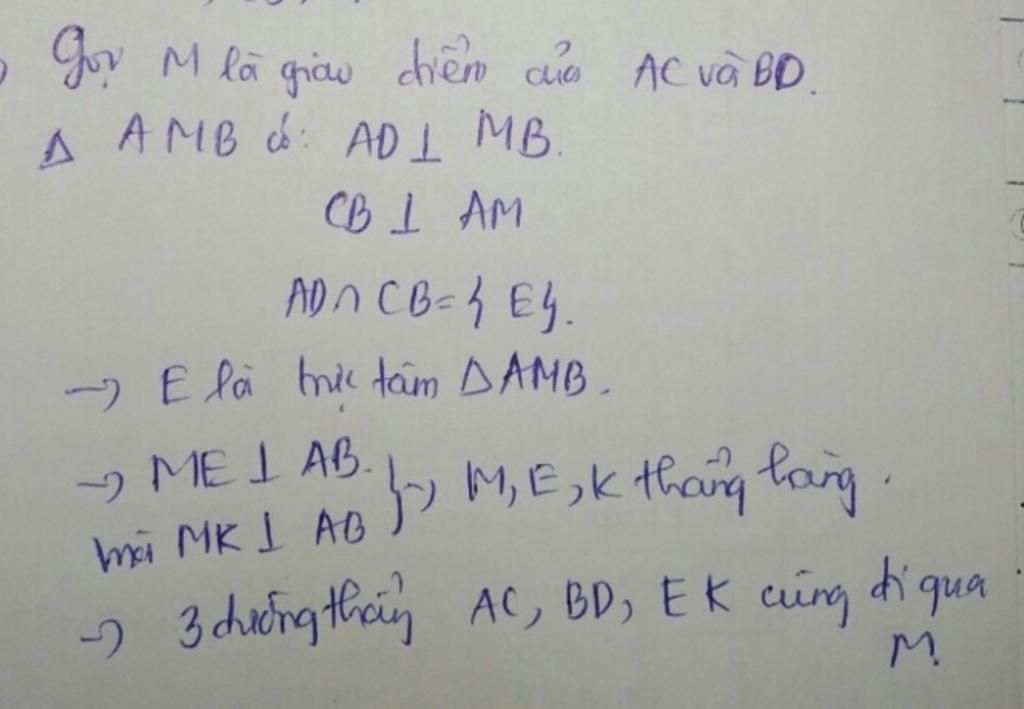 Gọi M là giao điểm của AC và BD.
Δ AMB có: AD ⊥ MB.
CB ⊥ AM
AD ∩ CB = { E}.
→ E là trực tâm Δ AMB.
→ ME ⊥ AB. } → M, E, K thẳng hàng.
mà MK ⊥ AB
→ 3 đường thẳng AC, BD, EK cùng đi qua
M.